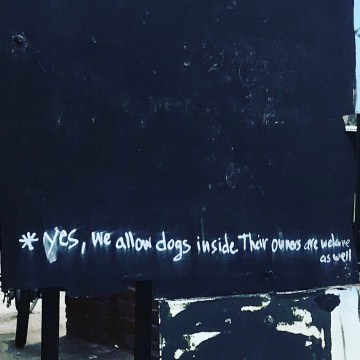 * yes, we allow dogs inside. Their owners are welcome
as well